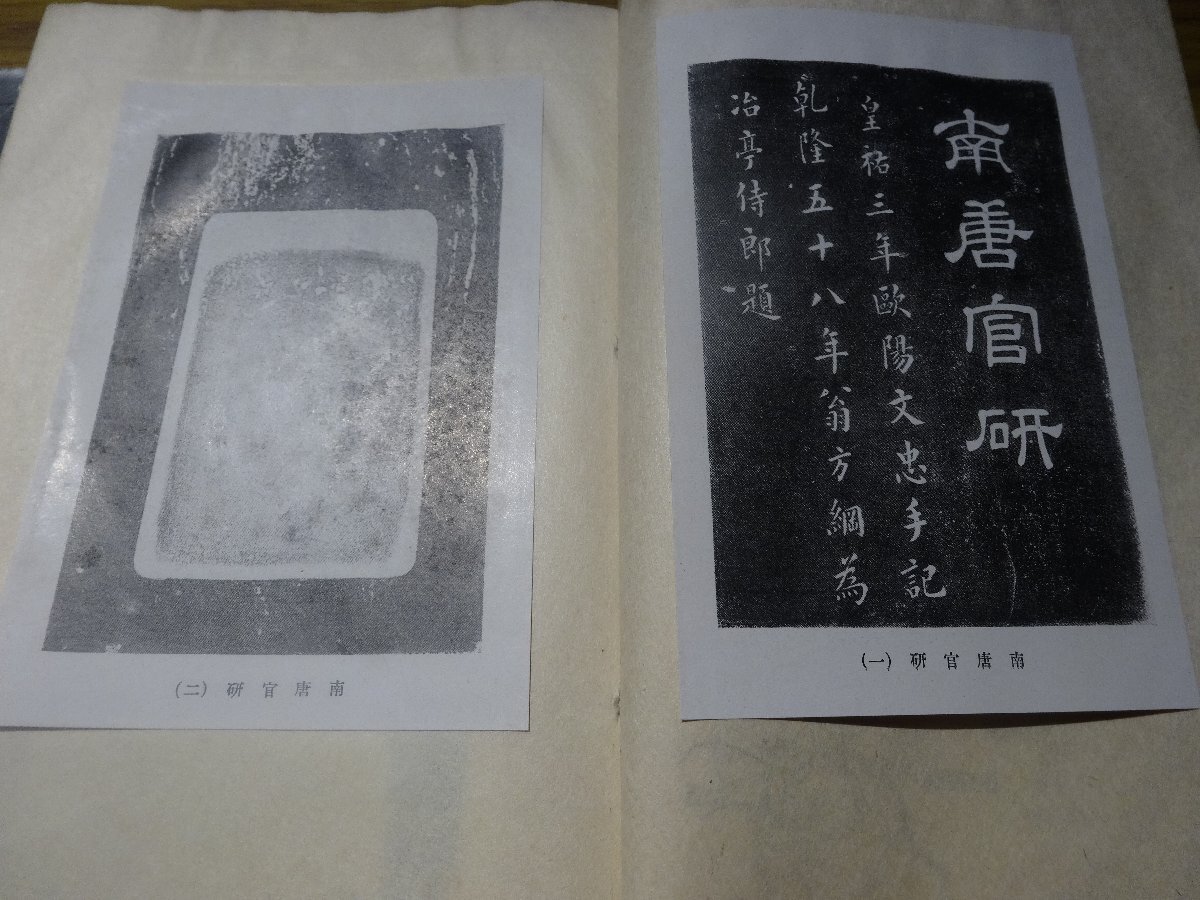 南唐官研
皇祐三年歐陽文忠手記
乹隆五十八年翁方綱為
冶亭侍郎題
(一) 研官唐南
(二) 研官唐南